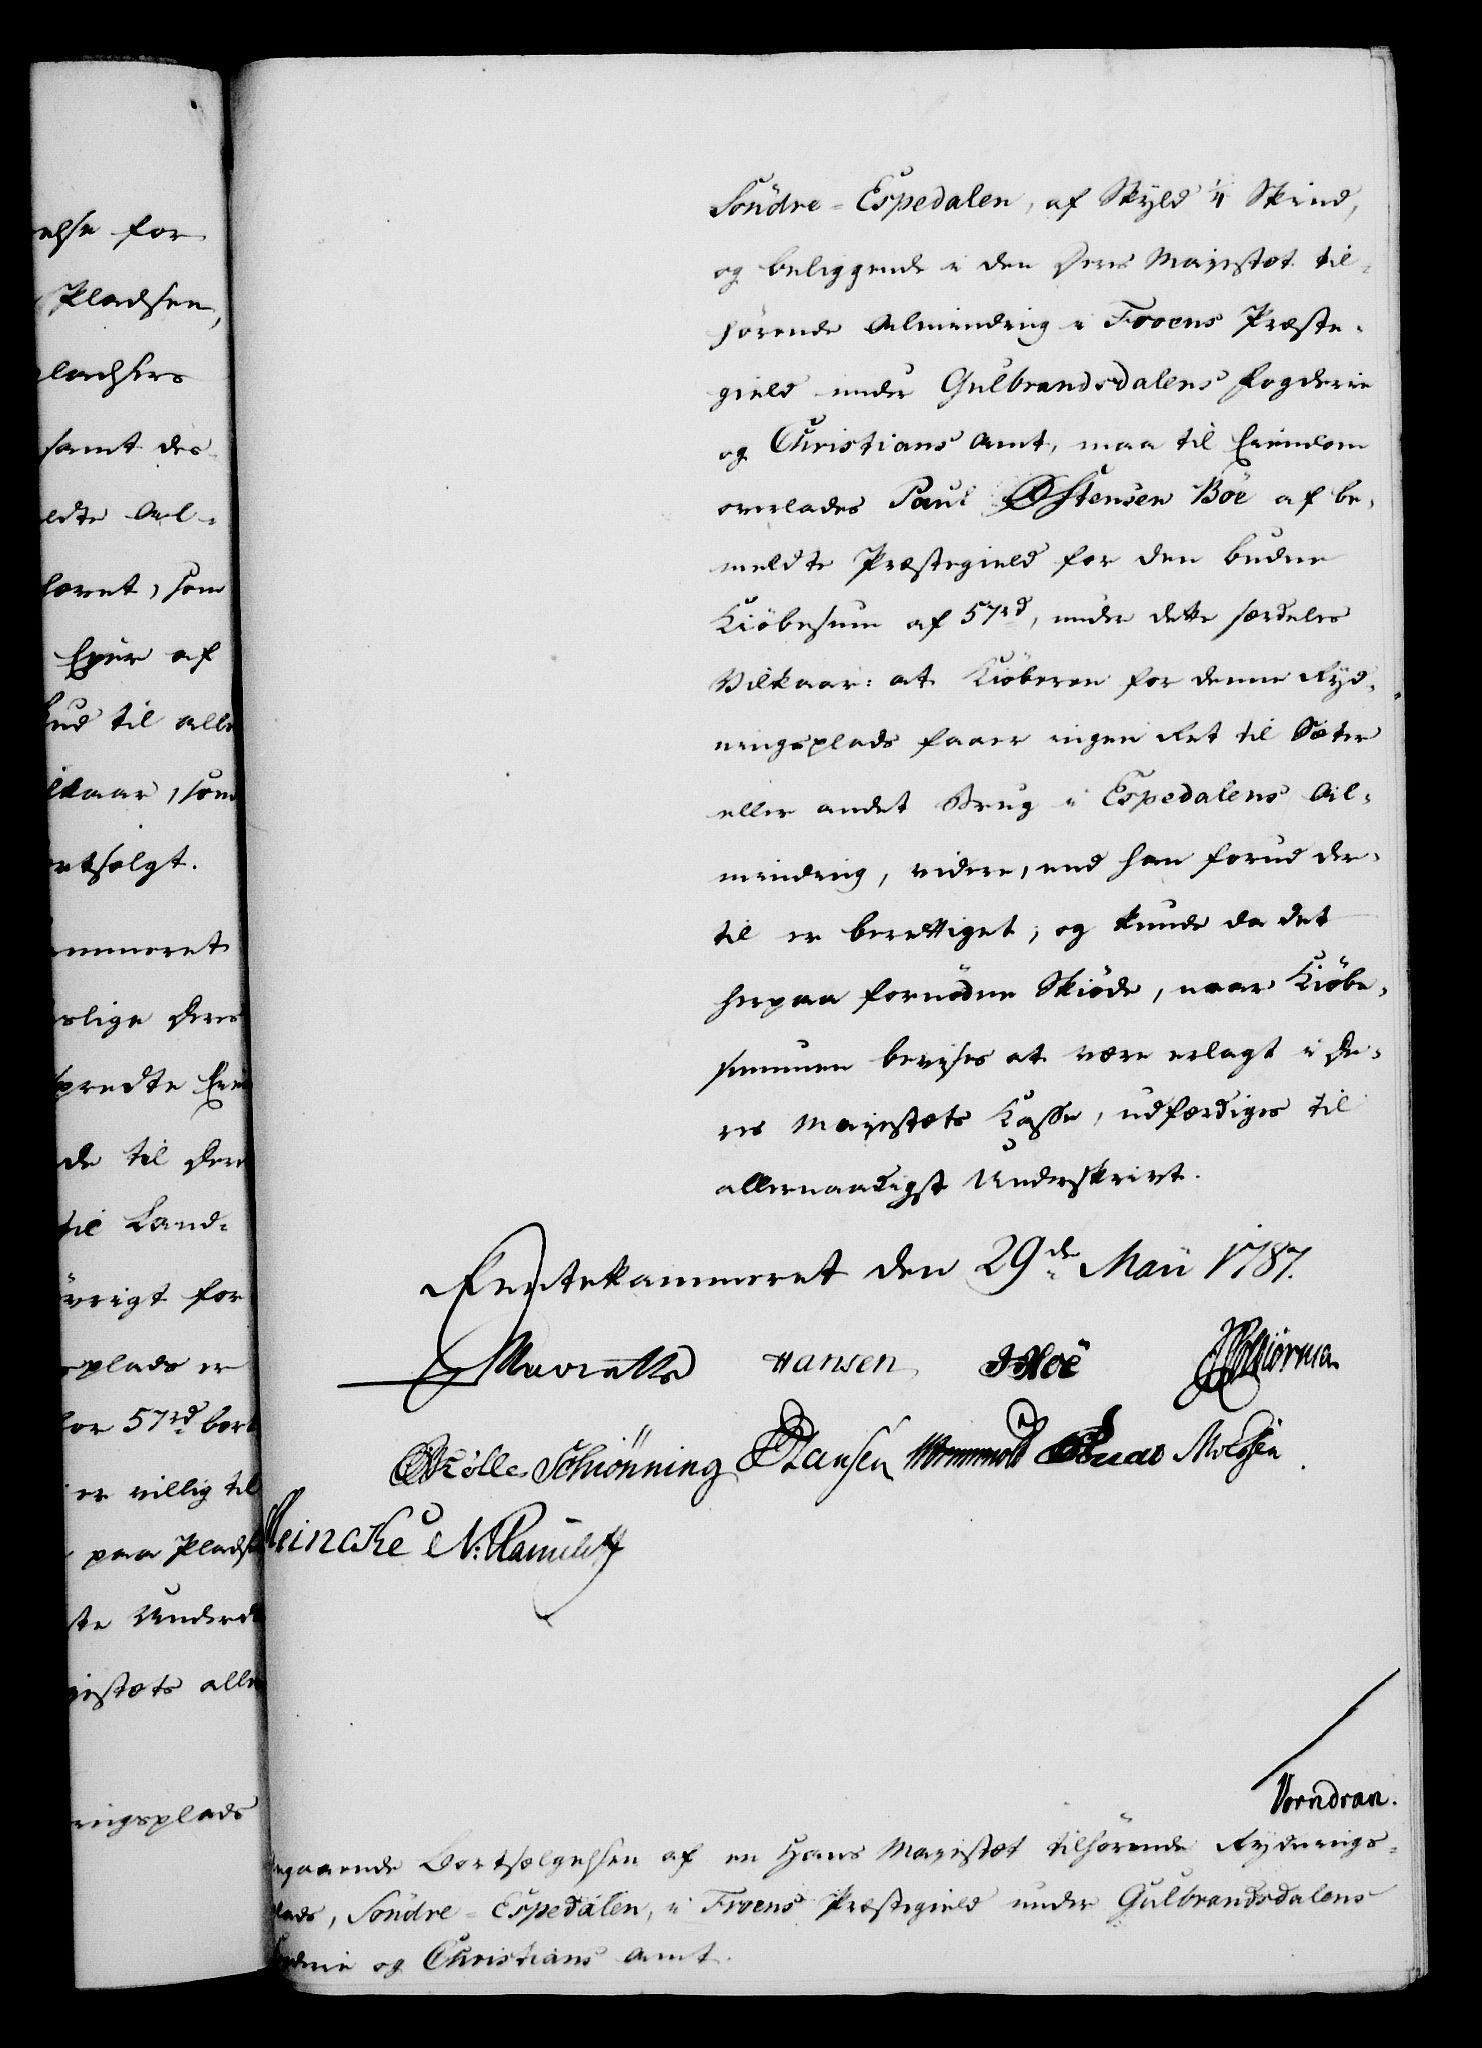 else for
Pladsen,
pladsers
samt des-
ldte Al-
vornt, som
Eyer af
bud til alle
lkaar, som
rtsolgt.
ammeret
slige Deres
spredte Eien
de til Dere
til Land-
övrigt for
splads er
for 57rd bort
er villig til
paa Pladse
ste Underd
jestæts alle
ningsplads
Söndre-Espedalen, af Skyld ¼ Skind,
og beliggende i den Deres Majestæt til-
hörende Alminding i Froens Præste-
gield under Gulbrandsdalens Fogderie
og Christians Amt, maa til Eiendom
overlades Paul Østensen Böe af be-
meldte Præstegield for den budne
Kiöbesum af 57rd, under dette særdeles
Vilkaar: at Kiöberen for denne Ryd-
ningsplads faaer ingen Ret til Sæter
eller andet Brug i Espedalens Al-
minding, videre, end han forud der-
til er berettiget; og kunde da det
herpaa fornödne Skiöde, naar Kiöbe-
summen bevises at være erlagt i De-
res Majestæts Kasse, udfærdiges til
allernaadigst Underskrivt.
Rentekammeret den 29de Maii 1787.
Hansen
Schiönning Hansen
Meincke
Vorndran.
ngaaende Bortsælgelsen af en Hans Majestæt tilhörende Rydnings-
lads, Söndre-Espedalen, i Froens Præstegield under Gulbrandsdalens
gderie og Christians Amt.